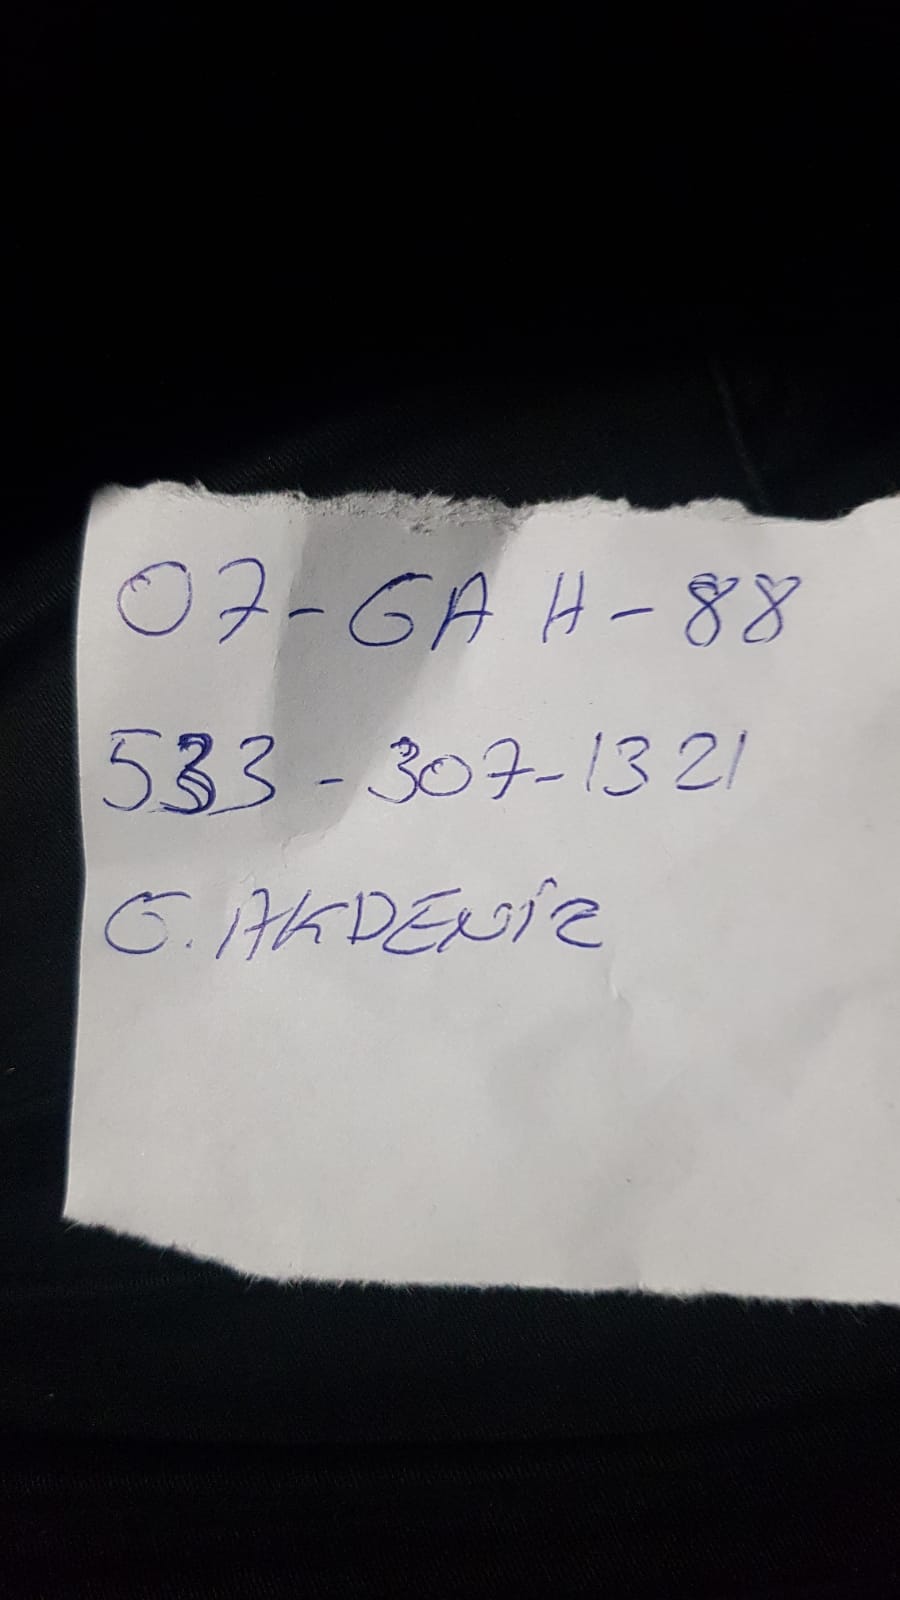 07-GAH-88
533-307-1321
G. AKDENİZ